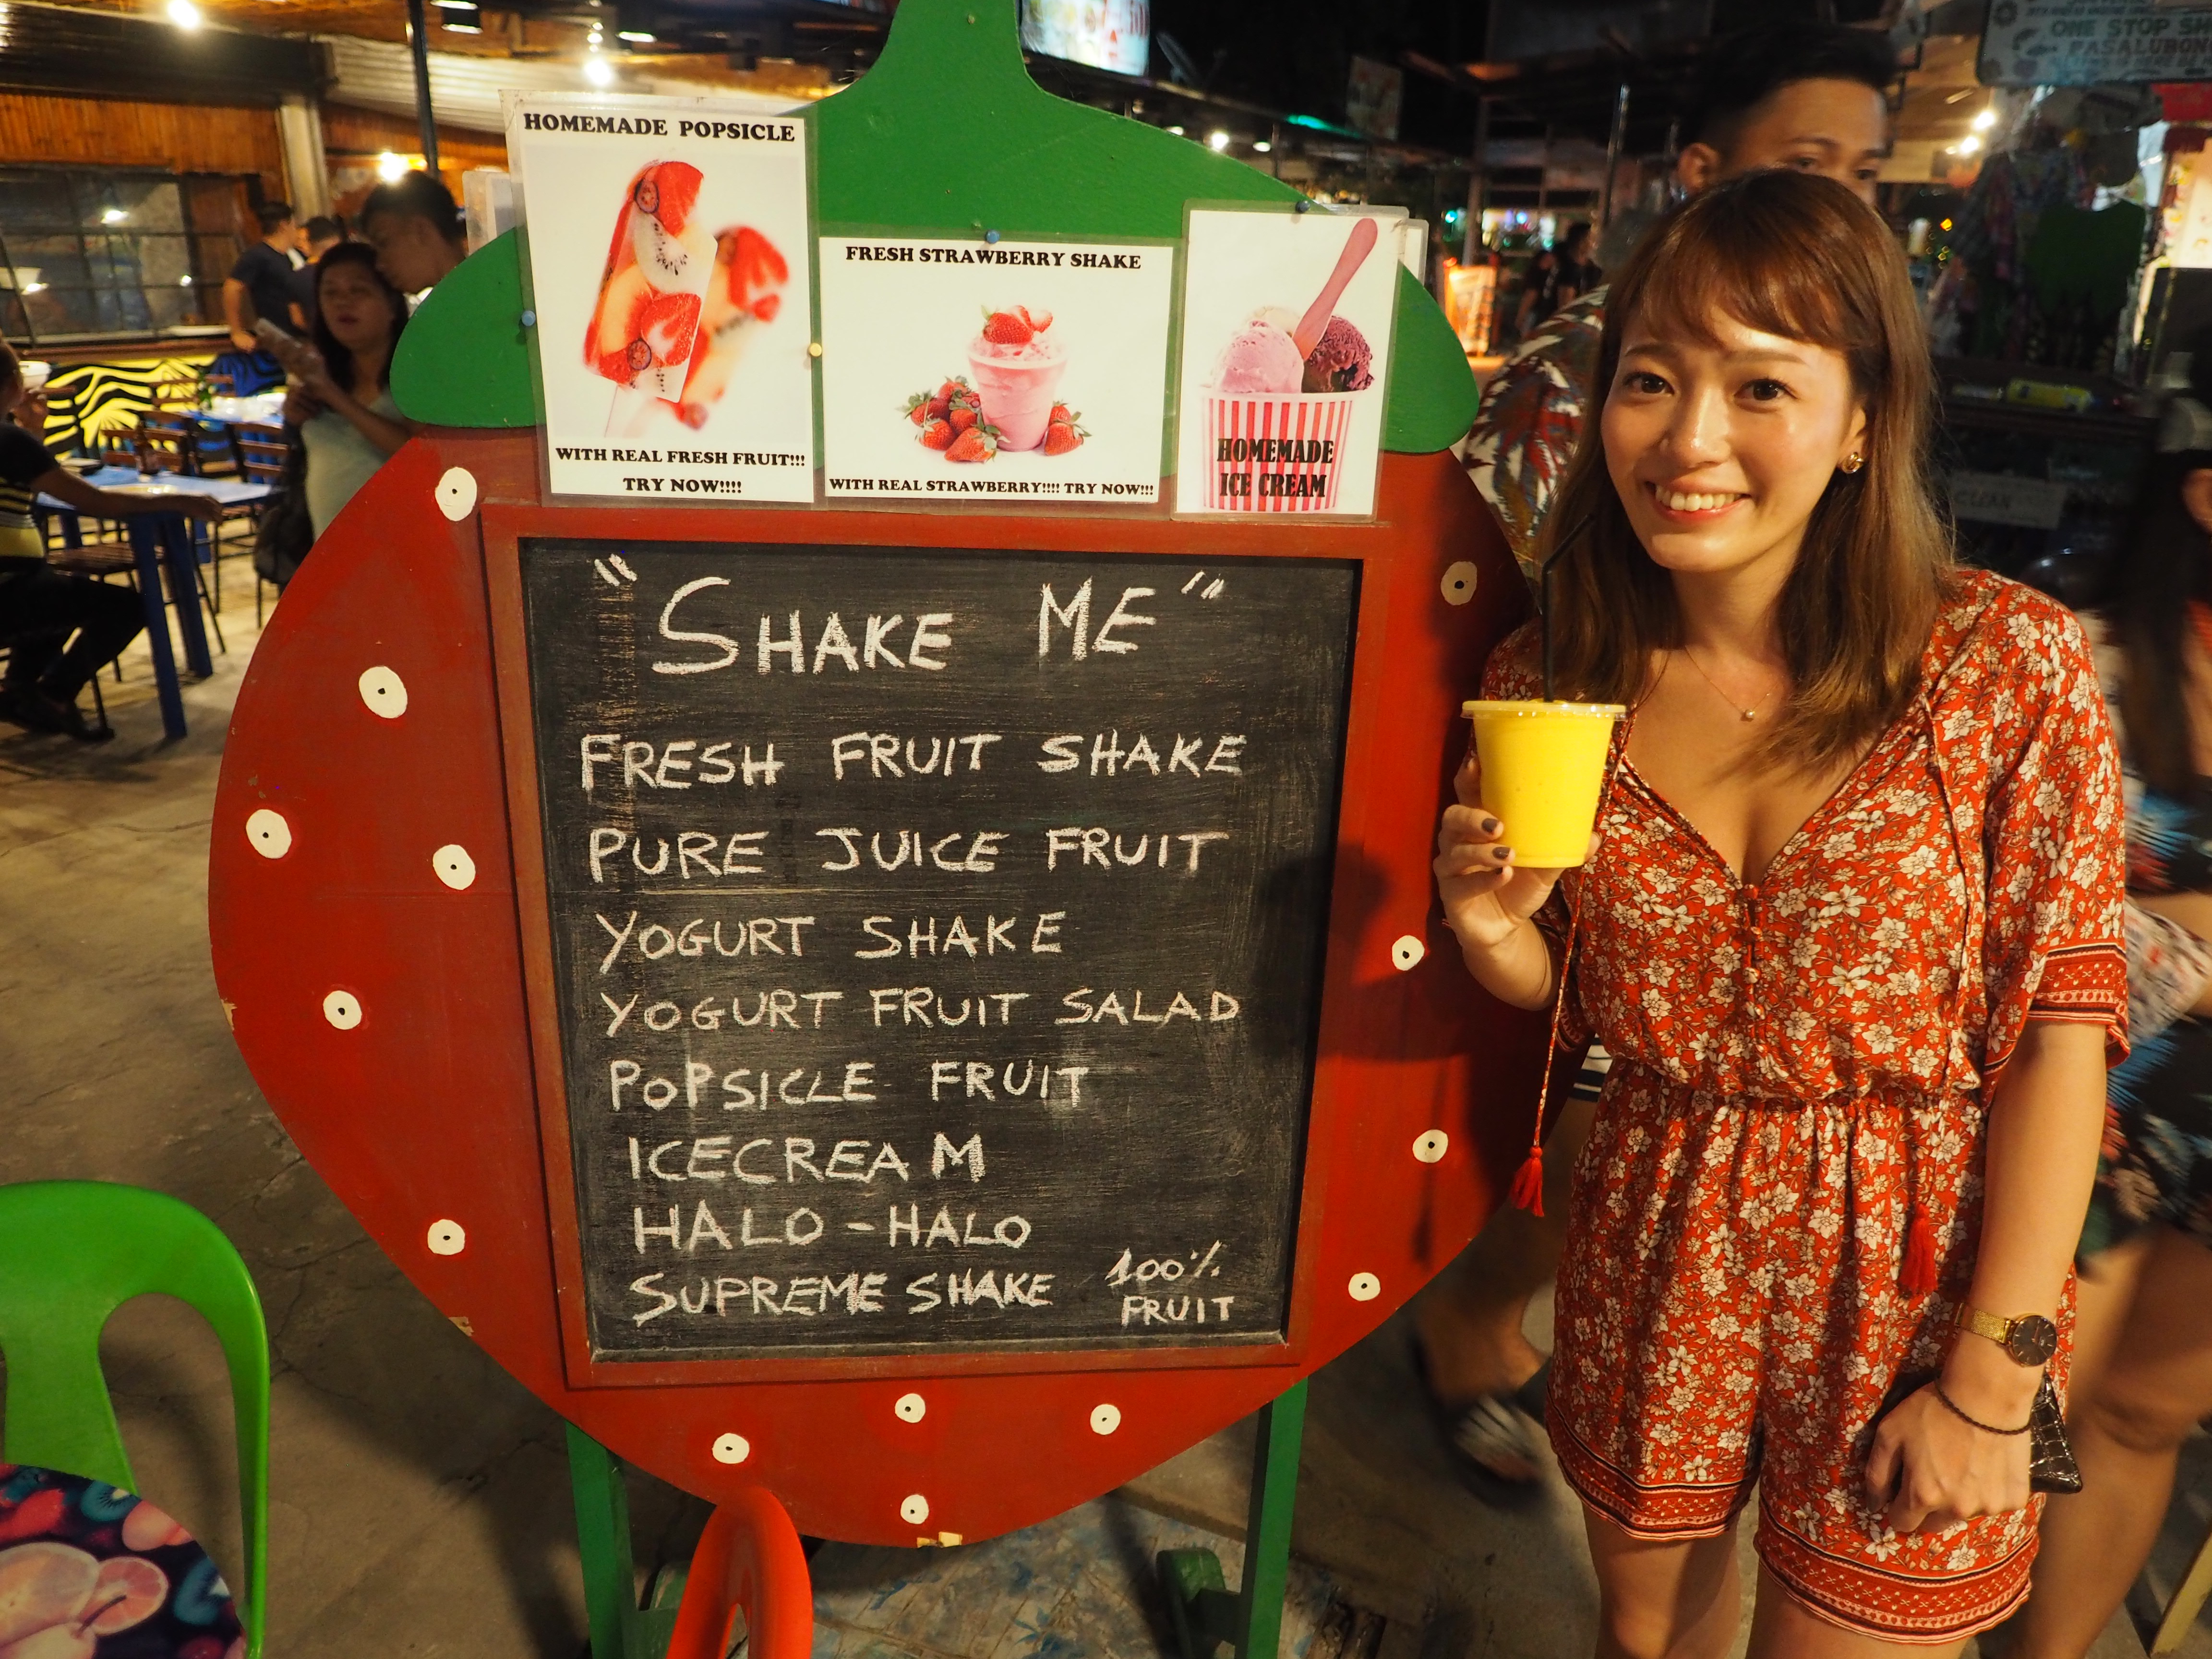 HOMEMADE POPSICLE
WITH REAL FRESH FRUIT!!!
TRY NOW!!!!
FRESH STRAWBERRY SHAKE
WITH REAL STRAWBERRY!!!! TRY NOW!!!
HOMEMADE
ICE CREAM
"SHAKE ME"
FRESH FRUIT SHAKE
PURE JUICE FRUIT
YOGURT SHAKE
YOGURT FRUIT SALAD
POPSICLE FRUIT
ICECREAM
HALO-HALO
SUPREME SHAKE
100%
FRUIT
ONE STOP